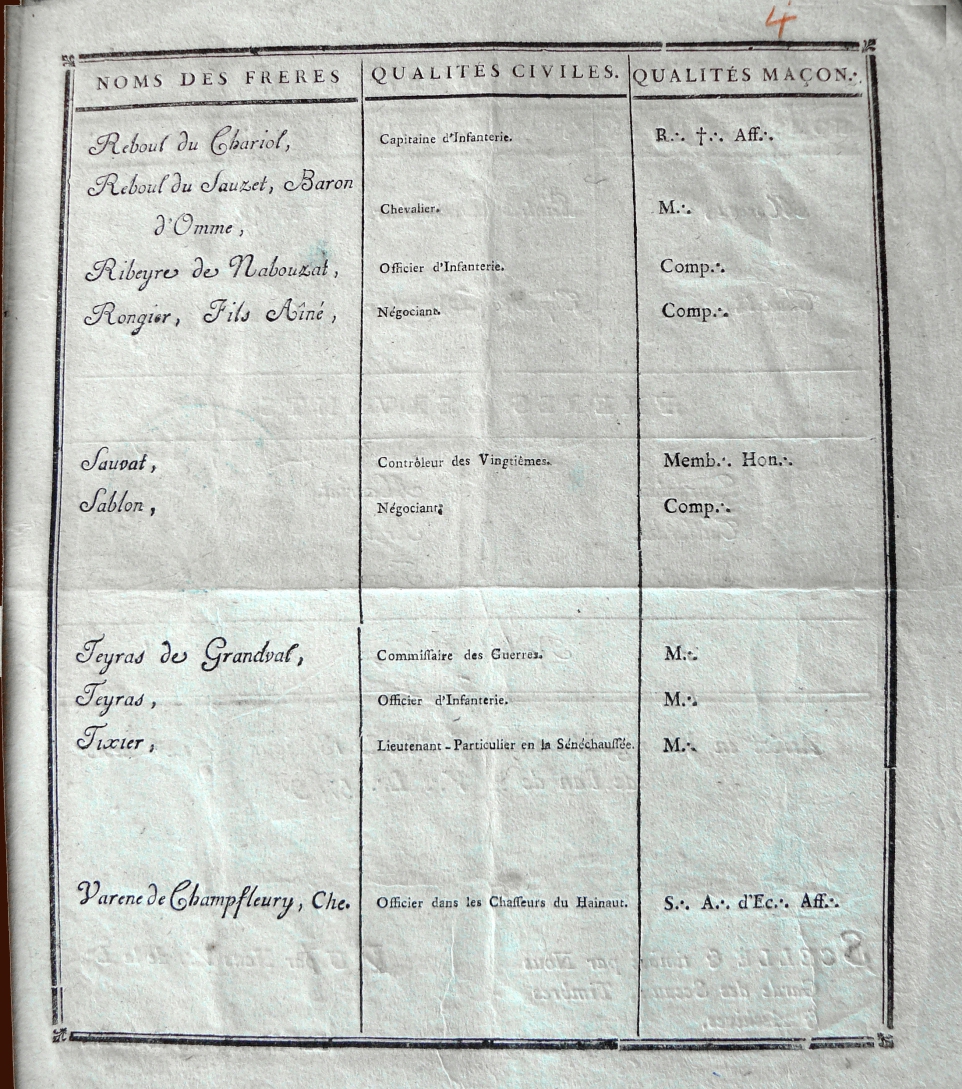 4
NOMS DES FRERES QUALITÉS CIVILES. QUALITÉS MAÇON∴
Reboul du Chariol, Capitaine d'Infanterie. R∴ †∴ Aff∴
Reboul du Sauzet, Baron
d'Omme, Chevalier. M∴
Ribeyre de Nabouzat, Officier d'Infanterie. Comp∴
Rongier, Fils Aîné, Négociant. Comp∴
Sauvat, Contrôleur des Vingtiêmes. Memb∴ Hon∴
Sablon, Négociant; Comp∴
Teyras de Grandval, Commiſſaire des Guerres. M∴
Teyras, Officier d'Infanterie. M∴
Tixier, Lieutenant-Particulier en la Sénéchauſſée. M∴
Varene de Champfleury, Che. Officier dans les Chaſſeurs du Hainaut. S∴ A∴ d'Ec∴ Aff∴